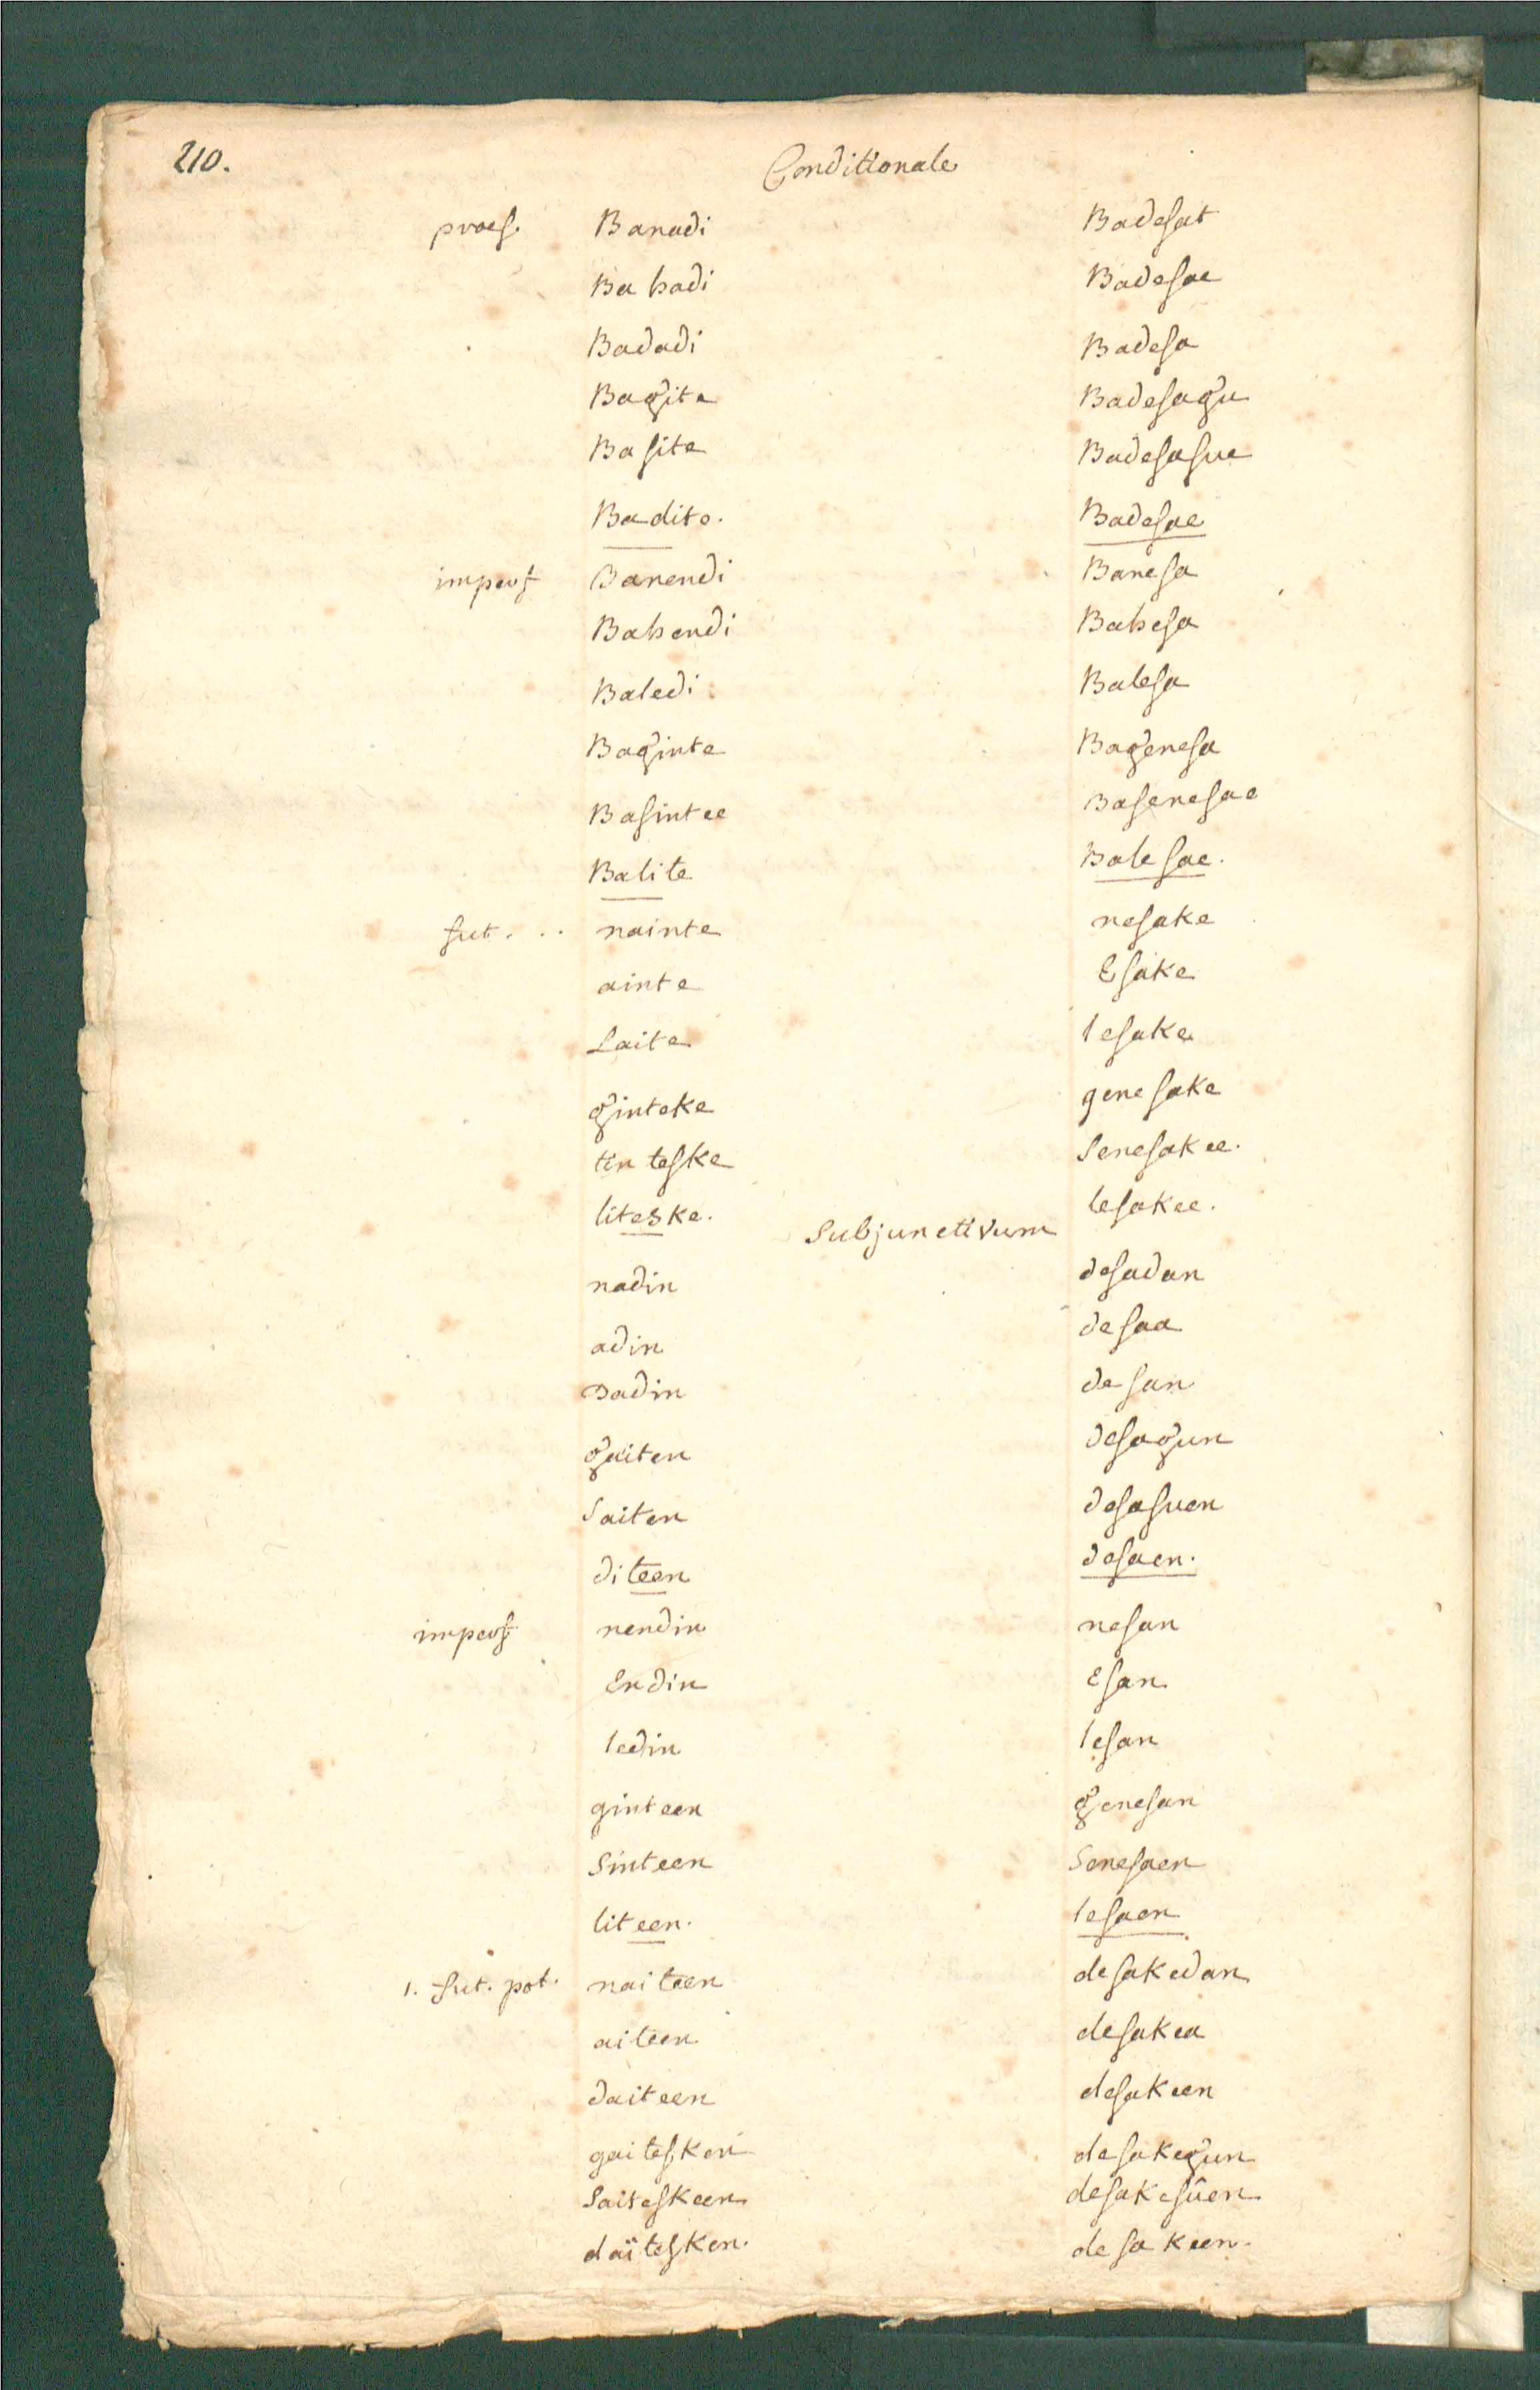 210.
Conditionale
praes. Banadi Badesat
Bahadi Badesae
Badadi Badesa
Bagite Badesagu
Basite Badesasue
Badite. Badesae
imperf Banendi Banesa
Bahendi Bahesa
Baledi Balesa
Baginte Bagenesa
Basintee Basenesae
Balite Balesae.
fut. .. nainte nesake
ainte Esake
Laite lesake
ginteke genesake
tinteske Senesakee.
liteske. lesakee.
Subjunctivum
nadin desadan
adin desaa
Dadin desan
gaiten desagun
Saiten desasuen
diteen desaen.
imperf nendin nesan
Endin Esan
ledin lesan
ginteen genesan
Sinteen Senesaen
liteen. lesaen
1. fut. pot. naiteen desakedan
aiteen desakea
daiteen desakeen
gaitesken desakegun
Saiteskeen desakesûen
daïtesken. desakeen.